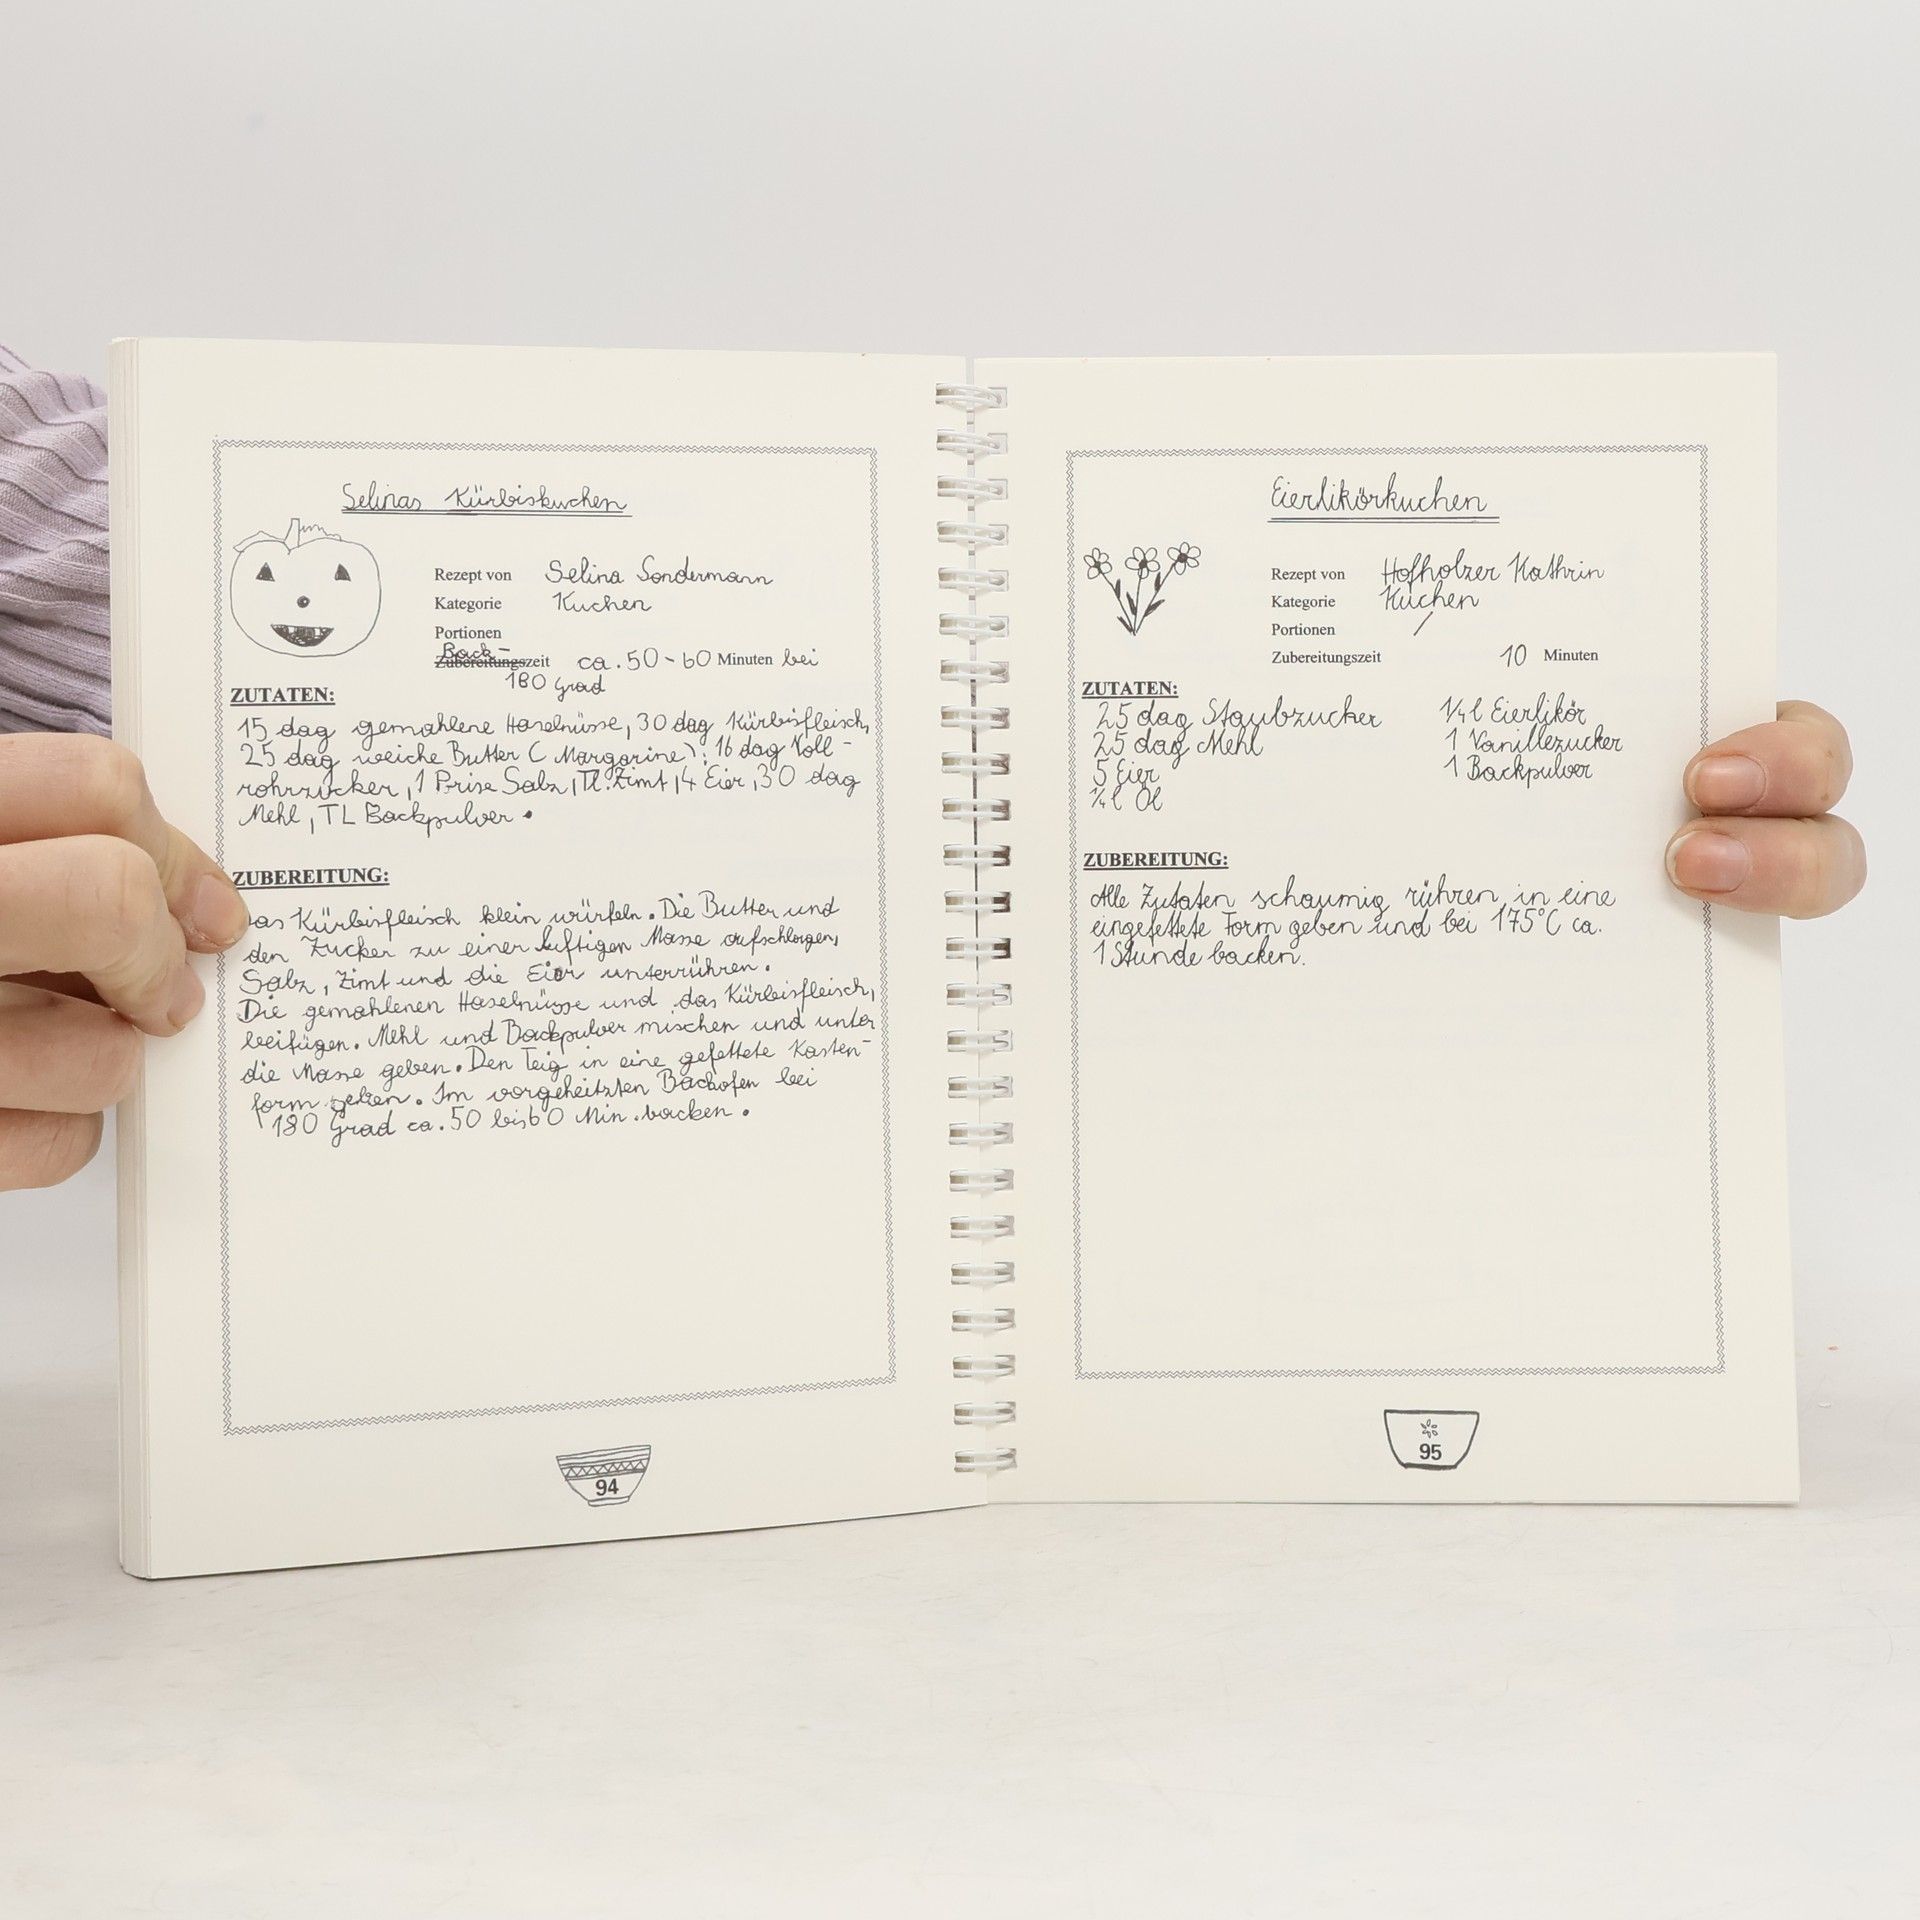 Selinas Kürbiskuchen
Rezept von Selina Sondermann
Kategorie Kuchen
Portionen
Back-
Zubereitungszeit ca. 50-60 Minuten bei
180 Grad
ZUTATEN:
15 dag gemahlene Haselnüsse, 30 dag Kürbisfleisch,
25 dag weiche Butter (Margarine), 16 dag Voll-
rohrzucker, 1 Prise Salz, TL. Zimt, 4 Eier, 30 dag
Mehl, TL Backpulver.
ZUBEREITUNG:
as Kürbisfleisch klein würfeln. Die Butter und
den Zucker zu einer luftigen Masse aufschlagen,
Salz, Zimt und die Eier unterrühren.
Die gemahlenen Haselnüsse und das Kürbisfleisch,
beifügen. Mehl und Backpulver mischen und unter
die Masse geben. Den Teig in eine gefettete Kasten-
form geben. Im vorgeheitzten Backofen bei
180 Grad ca. 50 bis 60 Min. backen.
94
Eierlikörkuchen
Rezept von Hofholzer Kathrin
Kategorie Kuchen
Portionen /
Zubereitungszeit 10 Minuten
ZUTATEN:
25 dag Staubzucker 1/4 l Eierlikör
25 dag Mehl 1 Vanillezucker
5 Eier 1 Backpulver
1/4 l Öl
ZUBEREITUNG:
Alle Zutaten schaumig rühren, in eine
eingefettete Form geben und bei 175°C ca.
1 Stunde backen.
95